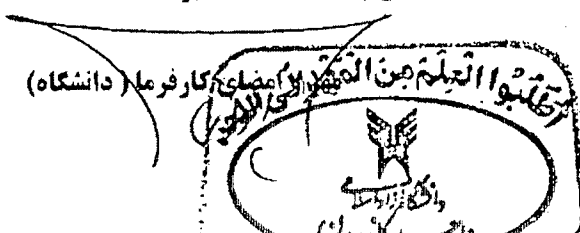 مهر و امضای کارفرما ( دانشگاه)
اطلبوا العلم من المهد الی اللحد
دانشگاه آزاد اسلامی